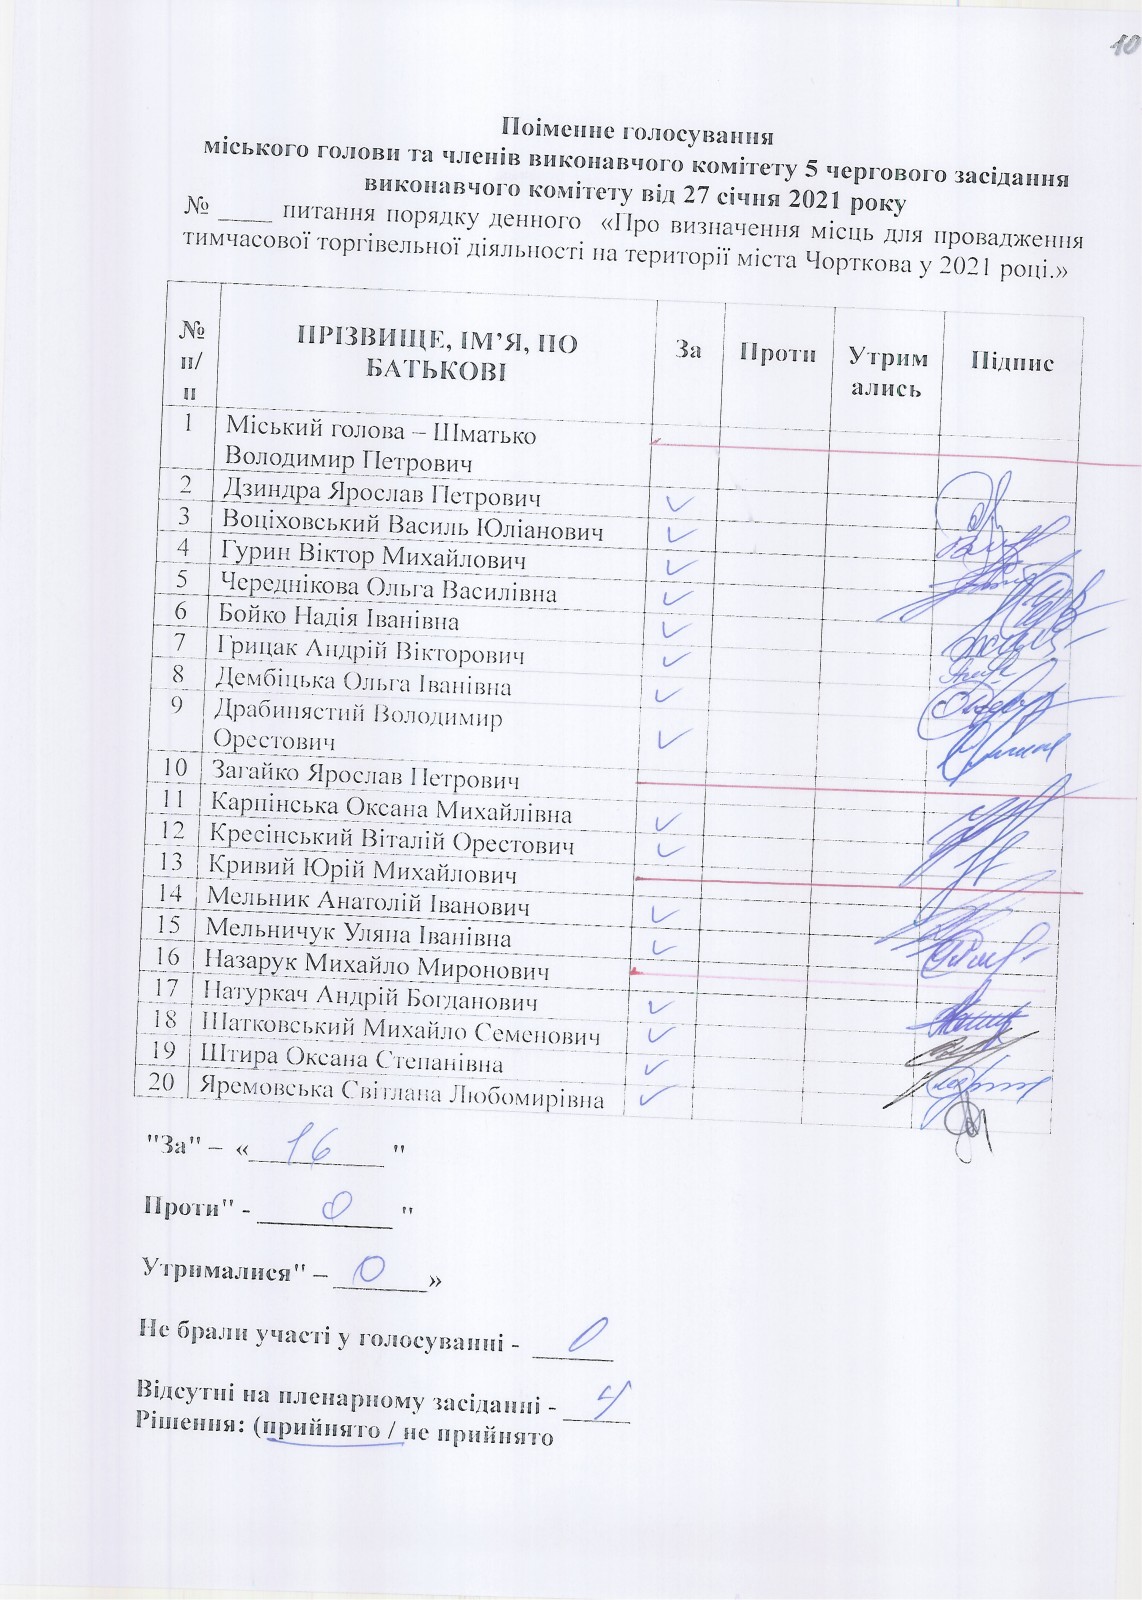 10
Поіменне голосування
міського голови та членів виконавчого комітету 5 чергового засідання
виконавчого комітету від 27 січня 2021 року
№ ____ питання порядку денного «Про визначення місць для провадження
тимчасової торгівельної діяльності на території міста Чорткова у 2021 році.»
№ п/п ПРІЗВИЩЕ, ІМ’Я, ПО БАТЬКОВІ За Проти Утримались Підпис
1 Міський голова – Шматько
Володимир Петрович
2 Дзиндра Ярослав Петрович ✓
3 Воціховський Василь Юліанович ✓
4 Гурин Віктор Михайлович ✓
5 Череднікова Ольга Василівна ✓
6 Бойко Надія Іванівна ✓
7 Грицак Андрій Вікторович ✓
8 Дембіцька Ольга Іванівна ✓
9 Драбинястий Володимир
Орестович ✓
10 Загайко Ярослав Петрович
11 Карпінська Оксана Михайлівна ✓
12 Кресінський Віталій Орестович ✓
13 Кривий Юрій Михайлович
14 Мельник Анатолій Іванович ✓
15 Мельничук Уляна Іванівна ✓
16 Назарук Михайло Миронович
17 Натуркач Андрій Богданович ✓
18 Шатковський Михайло Семенович ✓
19 Штира Оксана Степанівна ✓
20 Яремовська Світлана Любомирівна ✓
"За" – «16"
Проти" - 0"
Утрималися" – 0»
Не брали участі у голосуванні - 0
Відсутні на пленарному засіданні - 4
Рішення: (прийнято / не прийнято